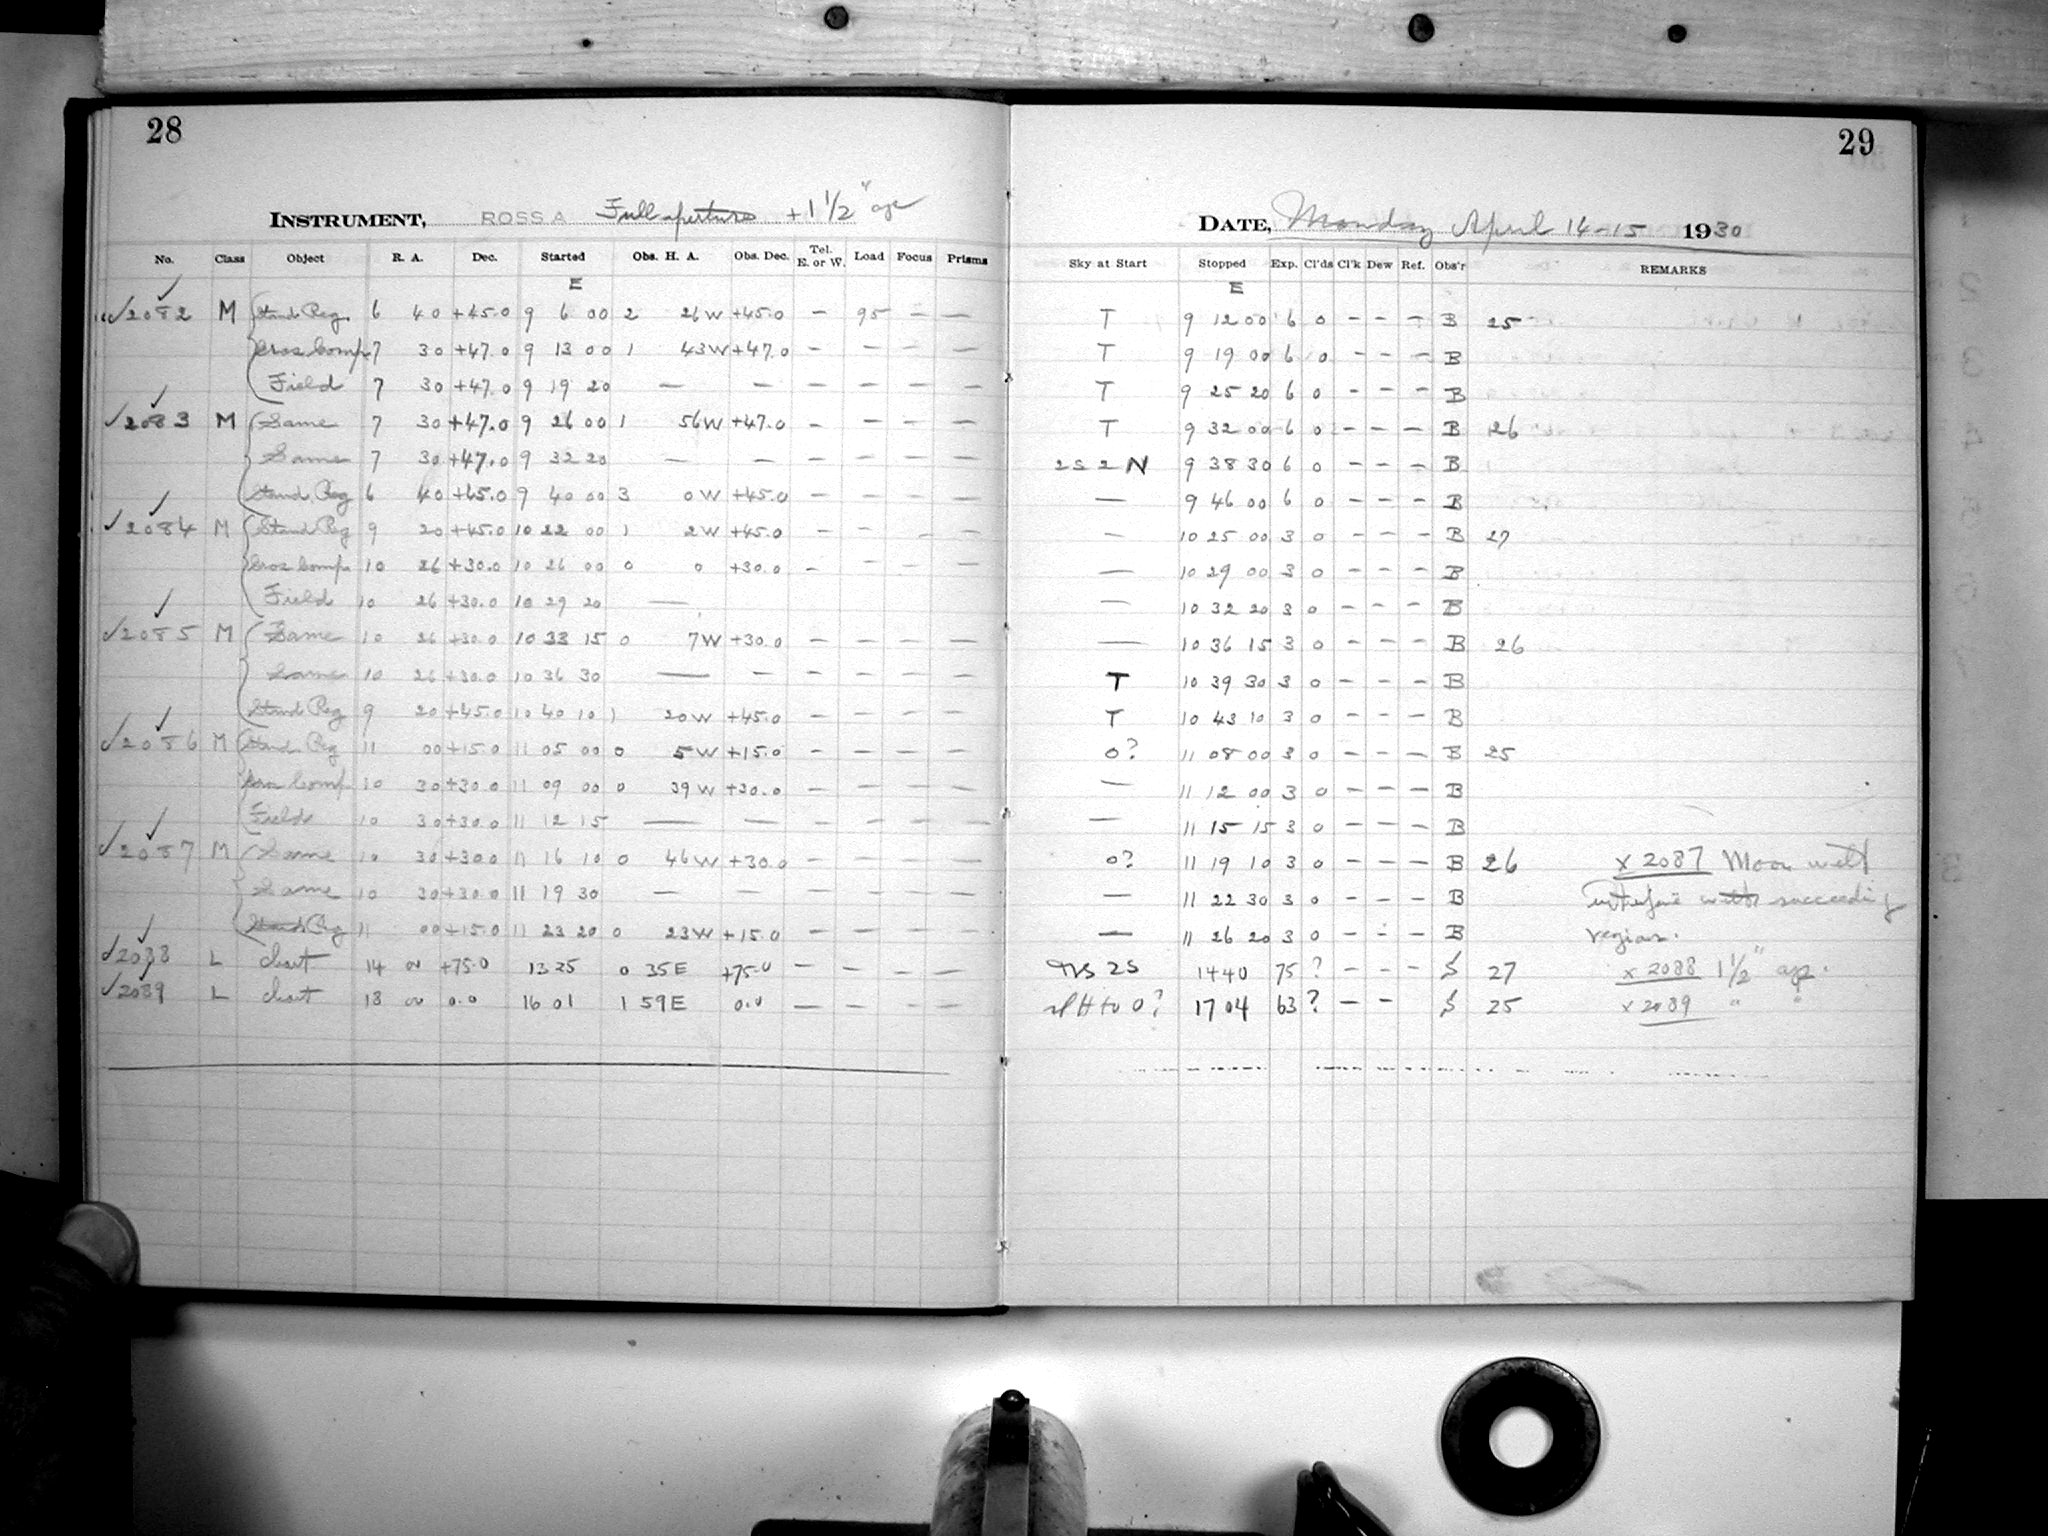 28
INSTRUMENT, ROSS A Full aperture + 1 1/2" ap
No. Class Object R. A. Dec. Started Obs. H. A. Obs. Dec. Tel. E. or W. Load Focus Prisms
E
✓2082 M Stand Reg. 6 40 +45.0 9 6 00 2 26W +45.0 — 95 — —
Pros Comp 7 30 +47.0 9 13 00 1 43W +47.0 — — — —
Field 7 30 +47.0 9 19 20 — — — — — —
✓2083 M Same 7 30 +47.0 9 26 00 1 56W +47.0 — — — —
Same 7 30 +47.0 9 32 20 — — — — — —
Stand Reg 6 40 +45.0 9 40 00 3 0W +45.0 — — — —
✓2084 M Stand Reg 9 20 +45.0 10 22 00 1 2W +45.0 — — — —
Pros Comp. 10 26 +30.0 10 26 00 0 0 +30.0 — — — —
Field 10 26 +30.0 10 29 20 —
✓2085 M Same 10 26 +30.0 10 33 15 0 7W +30.0 — — — —
Same 10 26 +30.0 10 36 30 — — — — — —
Stand Reg 9 20 +45.0 10 40 10 1 20W +45.0 — — — —
✓2086 M Stand. Reg 11 00 +15.0 11 05 00 0 5W +15.0 — — — —
Pros Comp. 10 30 +30.0 11 09 00 0 39W +30.0 — — — —
Field 10 30 +30.0 11 12 15 — — — — — —
✓2087 M Same 10 30 +30.0 11 16 10 0 46W +30.0 — — — —
Same 10 30 +30.0 11 19 30 — — — — — —
Stand Reg 11 00 +15.0 11 23 20 0 23W +15.0 — — — —
✓2088 L chart 14 00 +75.0 13 25 0 35E +75.0 — — — —
✓2089 L chart 18 00 0.0 16 01 1 59E 0.0 — — — —
29
DATE, Monday April 14-15 1930
Sky at Start Stopped Exp. Cl'ds Cl'k Dew Ref. Obs'r REMARKS
E
T 9 12 00 6 0 — — — B 25
T 9 19 00 6 0 — — — B
T 9 25 20 6 0 — — — B
T 9 32 00 6 0 — — — B 26
2S 2N 9 38 30 6 0 — — — B
— 9 46 00 6 0 — — — B
— 10 25 00 3 0 — — — B 27
— 10 29 00 3 0 — — — B
— 10 32 20 3 0 — — — B
— 10 36 15 3 0 — — — B 26
T 10 39 30 3 0 — — — B
T 10 43 10 3 0 — — — B
0? 11 08 00 3 0 — — — B 25
— 11 12 00 3 0 — — — B
— 11 15 15 3 0 — — — B
0? 11 19 10 3 0 — — — B 26 x 2087 Moon will
— 11 22 30 3 0 — — — B interfere with succeeding
— 11 26 20 3 0 — — — B region.
2S 14 40 75 ? — — — S 27 x 2088 1 1/2" ap.
to 0? 17 04 63 ? — — S 25 x 2089 " "